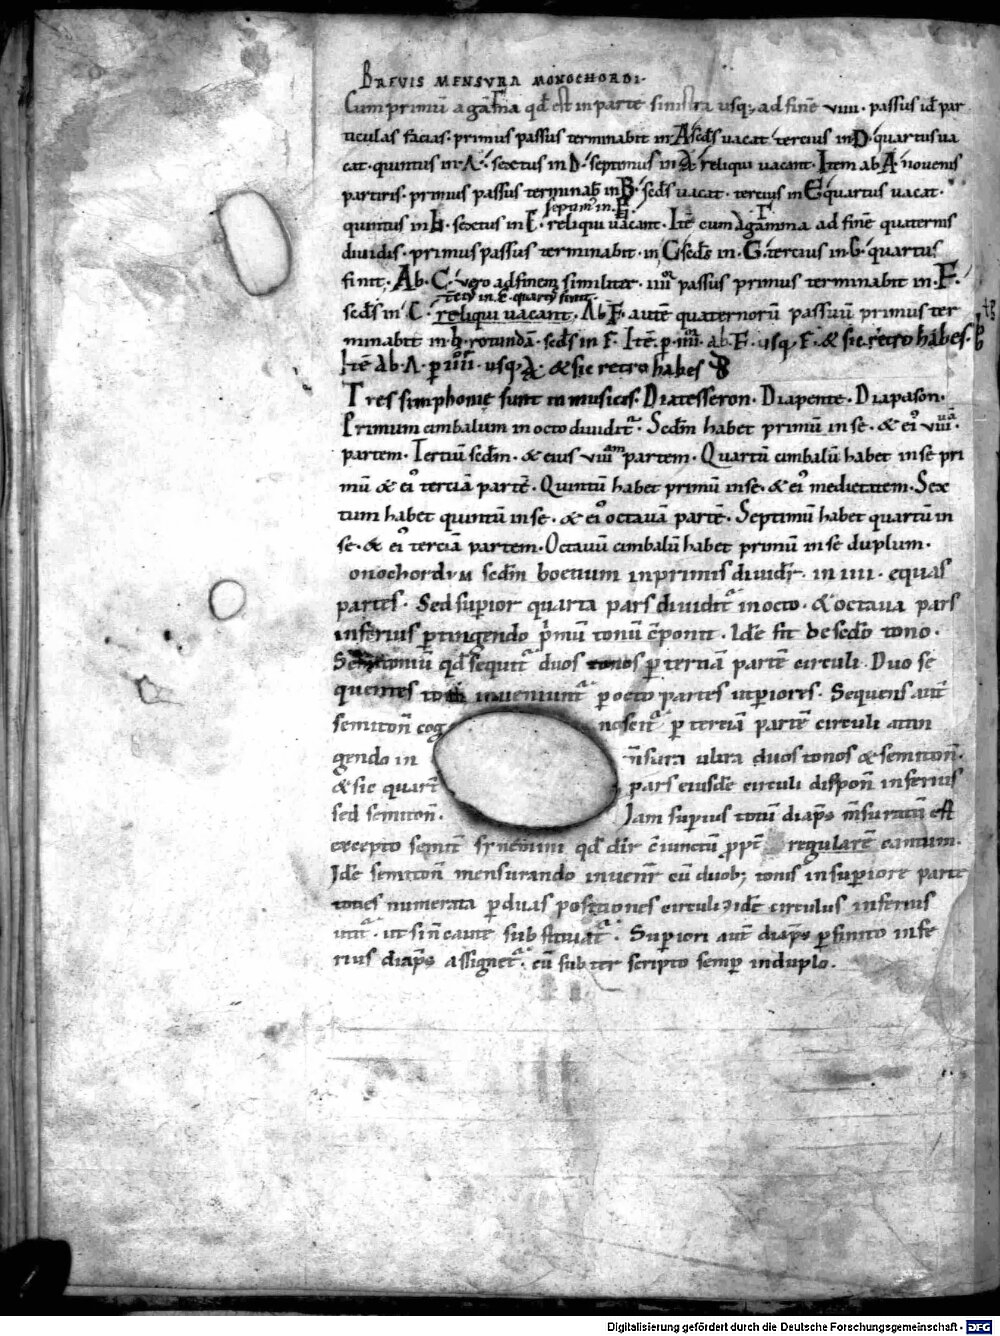 BREVIS MENSVRA MONOCHORDI.
Cum primū a gāma qđ est in parte sinistra usq; ad finē viiii · passus id par
ticulas facias · primus passus terminabit in A · scđs vacat · tercius in D · quartus ua
cat · quintus in · A · sextus in · D · septimus in reliqui vacant · Item ab A novenis
partiris · primus passus terminab̄ in B · scđs uacat · tercius in E quartus vacat ·
septimꝰ in
quintus in · sextus in E · reliqui uacant · Itē cum a gāmma ad finē quaternis
diuidis · primus passus terminabit · in C scđs in · G · tercius in · G · quartus
finit · Ab · C · vero ad finem similiter · passus primus terminabit in · F ·
quartꝰ finit
scđs in · C · reliqui uacant · Ab · F · autē quaternorū passuū primus ter
minabit in · rotunda · scđs in F · Itē · p · ab · F · usq · F · & sic retro habes ·
Itē Ab · A · p usq · & sic retro habes
Tres simphonie sunt in musicos · Diatesseron · Diapente · Diapason ·
Primum cimbalum in octo diuiditꝰ · Scđm habet primū in se · & eiꝰ viii ·
partem · Terciū scđm · & eius partem · Quartū cimbalū habet in se pri
mū & eiꝰ terciā partē · Quintū habet primū in se · & eiꝰ medietatem · Sex
tum habet quintū in se · & eiꝰ octauā partē · Septimū habet quartū in
se · & eiꝰ terciā partem · Octauū cimbalū habet primū in se duplum ·
onochordum scđm boetium in primis diuidr̄ · in iiii · equas
partes · Sed supior quarta pars diuiditꝰ in octo · & octaua pars
inferius ptingendo p̄mū tonū c̄ponit · Idē fit de scđo tono ·
qđ sequitꝰ duos tonos p ternā partē circuli · Duo se
quentes inueniuntꝰ p octo partes supiores · Sequens aut̄
semiton̄ cog noscitꝰ p terciā partē circuli attin
gendo in n̄sura ultra duos tonos & semiton̄ ·
& sic quart̄ pars eiusdē circuli dispon̄ inferius
sed semiton̄ · Iam supius totū diaps̄ m̄suratū est
excepto semit̄ qđ dīr c̄iunctū ppt̄ regularē cantum ·
Idē semiton̄ mensurando inuenīr cū duob; tonis in supiore parte
toties numerata p duas positiones circuli idē circulus inferius
ut sub · Supiori aut̄ diaps̄ pfinito infe
rius diaps̄ assignetꝰ · cū subter scripto semp in duplo ·
Digitalisierung gefördert durch die Deutsche Forschungsgemeinschaft · DFG